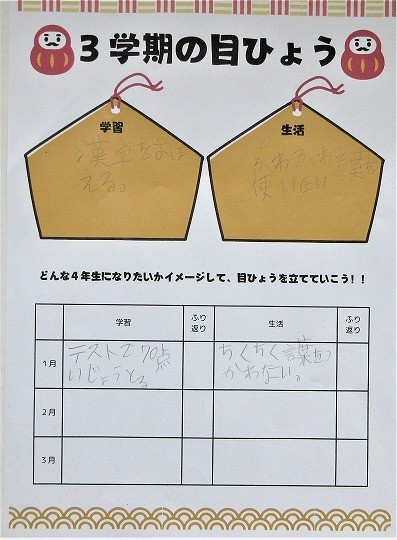 3学期の目ひょう
学習
漢字をおぼ
える。
生活
ふわふわ言葉を
使いたい
どんな4年生になりたいかイメージして、目ひょうを立てていこう!!
学習 ふり返り 生活 ふり返り
1月
テストで70点
いじょうとる
ちくちく言葉を
つかわない。
2月
3月